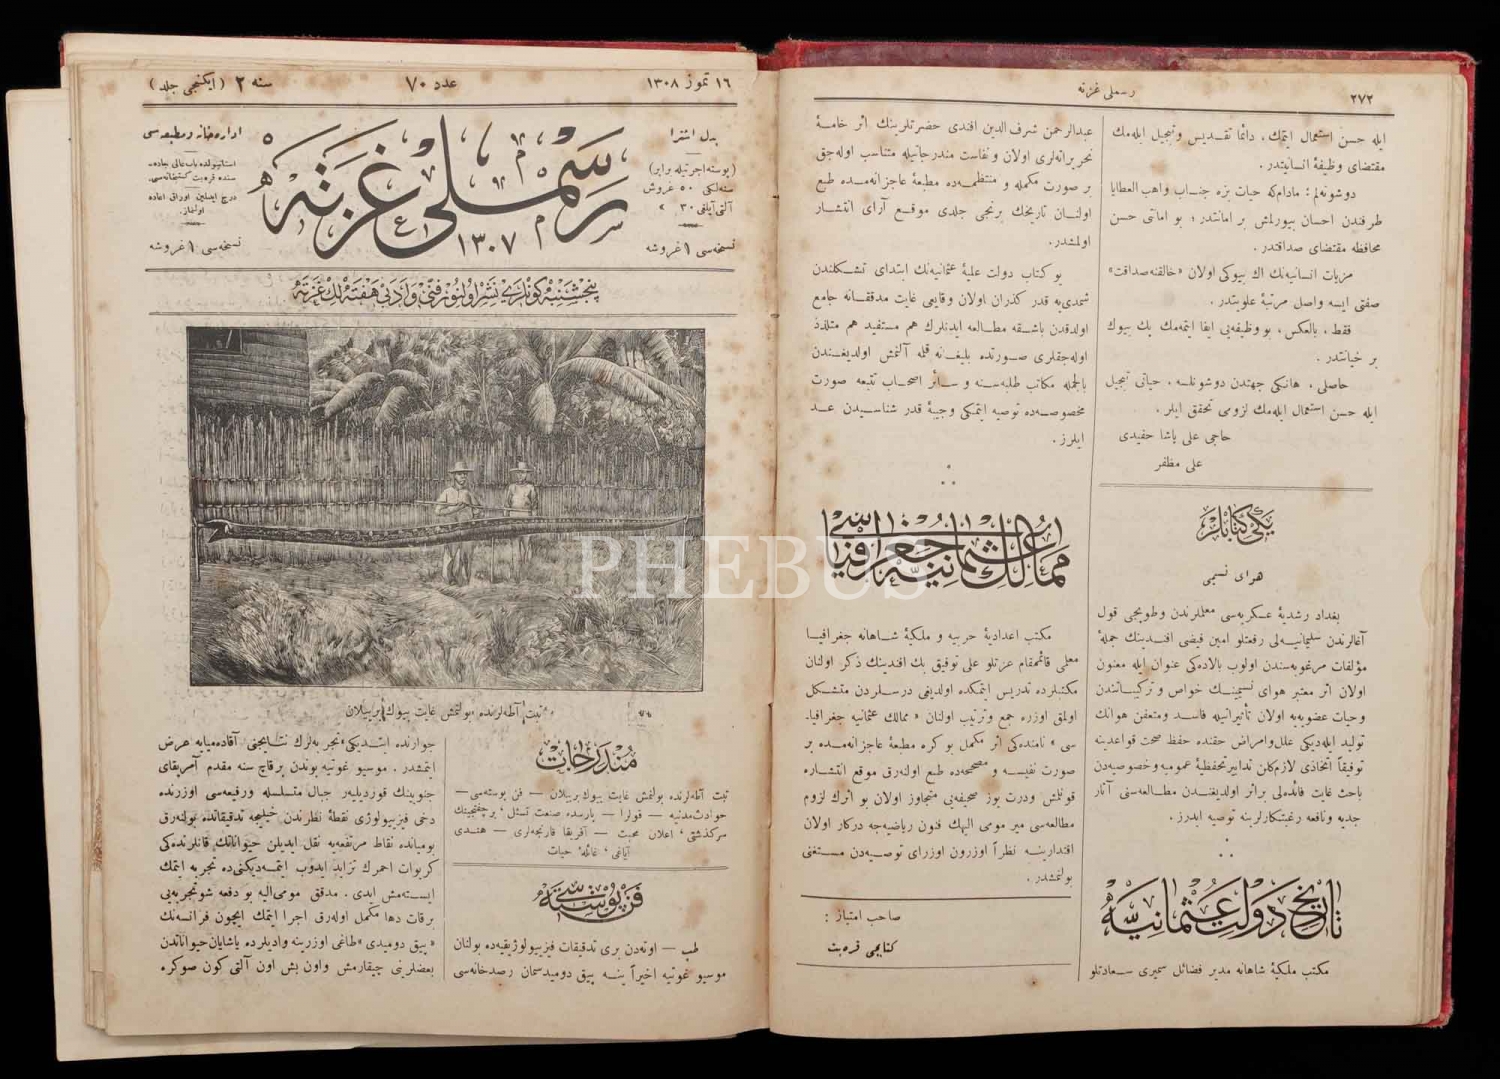 ١٦ تموز ١٣٠٨
عدد ٧٠
سنه ٢ (ايكنجى جلد)
بدل اشترا
(پوسته اجرتيله برابر)
سنه‌لكى ٥٠ غروش
آلتى آيلغى ٣٠ »
نسخه‌سى ١ غروشه
رسملى غزته
١٣٠٧
اداره‌خانه و مطبعه‌سى
استانبولده باب عالى جاده‌
سنده قره‌بت كتبخانه‌سى.
درج ايدلمين اوراق اعاده
اولنماز.
نسخه‌سى ١ غروشه
پنجشنبه كونلرى نشر اولنور فنى و ادبى هفته‌لك غزته
PHEBUS
«تبت» آطه‌لرنده بولنمش غايت بيوك بر ييلان
مندرجات
تبت آطه‌لرنده بولنمش غايت بيوك بر ييلان — فن پوسته‌سى —
حوادث مدنيه — قولرا — پارسده صنعت تمثل، برچفتجينك
سركذشتى، اعلان محبت — آفريقا قارنجه‌لرى — هندى
آياغى، غائله‌ٔ حيات
فن پوسته‌سى
طب — اوته‌دن برى تدقيقات فيزيولوژيقيه‌ده بولنان
موسيو غوتيه اخيراً ينه پيق دوميدسمان رصدخانه‌سى
جوارنده ايتديكى تجربه‌لرك نتايجنى آقاده‌ميايه عرض
ايتمشدر. موسيو غوتيه بوندن برقاچ سنه مقدم آمريقاى
جنوبينك قورديليه‌ر جبال متسلسله ورفيعه‌سى اوزرنده
دخى فيزيولوژى نقطهٔ نظرندن خيليجه تدقيقاتده بوله‌رق
بوميانده نقاط مرتفعه‌يه نقل ايديلن حيواناتك قانلرنده‌كى
كريوات احمرك تزايد ايدوب ايتمه‌ديكنى ده تجربه ايتمك
ايسته‌مش ايدى. مدقق مومى‌اليه بو دفعه شو تجربه‌يى
برقات دها مكمل اوله‌رق اجرا ايتمك ايچون فرانسه‌نك
«پيق دوميدى» طاغى اوزرينه واديلرده ياشايان حيواناتدن
بعضلرينى چيقارمش واون بش اون آلتى كون صوكره
رسملى غزته
٢٧٢
ايله حسن استعمال ايتمك، دائما تقديس وتبجيل ايله‌مك
مقتضاى وظيفهٔ انسانيتدر.
دوشونه‌لم؛ مادام‌كه حيات بزه جناب واهب العطايا
طرفندن احسان بيورلمش بر امانتدر؛ بو امانتى حسن
محافظه مقتضاى صداقتدر.
مزيات انسانيه‌نك اك بيوكى اولان «خالقنه صداقت»
صفتى ايسه واصل مرتبهٔ علويتدر.
فقط، بالعكس، بو وظيفه‌يى ايفا ايتمه‌مك يك بيوك
بر خيانتدر.
حاصلى، هانكى جهتدن دوشونلسه، حياتى تبجيل
ايله حسن استعمال ايله‌مك لزومى تحقق ايلر.
حاجى على پاشا حفيدى
على مظفر
يكى كتابلر
هواى نسيمى
بغداد رشديهٔ عسكريه‌سى معلملرندن وطوپجى قول
آغالرندن سليمانيه‌لى رفعتلو امين فيضى افندينك جمله‌ٔ
مؤلفات مرغوبه‌سندن اولوب بالاده‌كى عنوان ايله معنون
اولان اثر معتبر هواى نسيمينك خواص و تركيباتندن
وحيات عضويه‌يه اولان تأثيراتيله فاسد ومتعفن هوانك
توليد ايله‌ديكى علل وامراض حقنده حفظ صحت قواعدينه
توفيقاً اتخاذى لازم‌كلن تدابير تحفظيهٔ عموميه وخصوصيه‌دن
باحث غايت فائده‌لى براثر اولديغندن مطالعه‌سنى آثار
جديه ونافعه رغبتكارلرينه توصيه ايدرز.
تاريخ دولت عثمانيه
مكتب ملكيهٔ شاهانه مدير فضائل سميرى سعادتلو
عبدالرحمن شرف الدين افندى حضرتلرينك اثر خامهٔ
تحريرانه‌لرى اولان ونفاست مندرجاتيله متناسب اوله‌جق
بر صورت مكمله و منتظمه‌ده مطبعهٔ عاجزانه‌مده طبع
اولنان تاريخك برنجى جلدى موقع آراى انتشار
اولمشدر.
بو كتاب دولت عليهٔ عثمانيه‌نك ابتداى تشكلندن
شمدى‌يه قدر كذران اولان وقايعى غايت مدققانه جامع
اولدقدن باشقه مطالعه ايدنلرك هم مستفيد هم متلذذ
اوله‌جقلرى صورتده بليغانه قلمه آلنمش اولديغندن
بالجمله مكاتب طلبه‌سنه و سائر اصحاب تتبعه صورت
مخصوصه‌ده توصيه ايتمكى وجيبهٔ قدر شناسيدن عد
ايلرز.
ممالك عثمانيه جغرافياسى
مكتب اعداديهٔ حربيه و ملكيهٔ شاهانه جغرافيا
معلمى قائممقام عزتلو على توفيق بك افندينك ذكر اولنان
مكتبلرده تدريس ايتمكده اولديغى درسلردن متشكل
اولمق اوزره جمع وترتيب اولنان «ممالك عثمانيه جغرافيا
سى» نامنده‌كى اثر مكمل بو كره مطبعهٔ عاجزانه‌مده بر
صورت نفيسه و مصححه‌ده طبع اولنه‌رق موقع انتشاره
قونلمش ودرت يوز صحيفه‌يى متجاوز اولان بو اثرك لزوم
مطالعه‌سى مير مومى اليهك فنون رياضيه‌جه دركار اولان
اقتدارينه نظراً اوزرون اوزراى توصيه‌دن مستغنى
بولنمشدر.
صاحب امتياز:
كتابجى قره‌بت